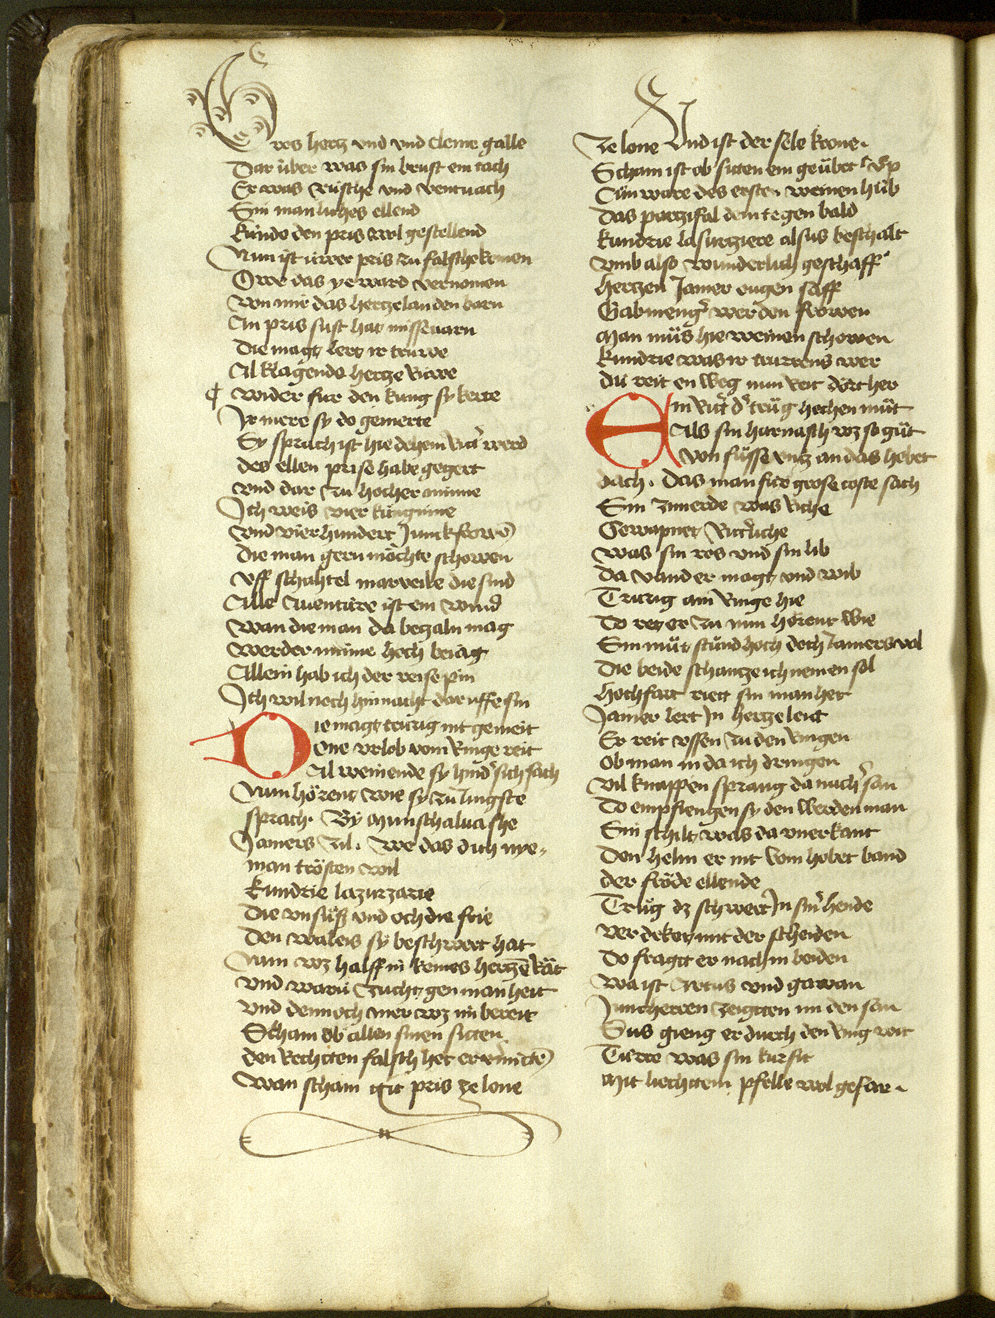 Gros hertz vnd vnd cleine galle
Dar über was sin brust ein tach
Er was Rüsche vnd ventuach
Sin manliches ellend
kunde den pris wol gestellend
Nun ist üwer pris zu falsche komen
Owe das ye ward vernomen
von mir das hertzelauden barn
An pris sust hat missevarn
Die magt lert ir truwe
Al klagende hertze Ruwe
wider fur den kung sy kerte
Ir mere sy do gemerte
Sy sprach ist hie dehein Ritter werd
des ellen prise habe gegert
vnd dar zu hocher minne
Ich weis vier künginne
vnd vier hundert Junkfrowen
die man gern möchte schowen
vff schahtel marveile die sind
Alle Auentüre ist ein wind
wan die man da bezaln mag
werder minne hoch beiag
Allein hab ich der reise pin
Ich wil noch hinnacht dar uffe sin
Die magt trurig nit gemeit
One vrlob vom Ringe reit
Al weinende sy hinder sich sach
Nun hörent wie sy zu Jungste
sprach. By Munschaluasche
Jamers zil. we das dich nye-
man trösten wil
kundrie lazurzarie
Die vnsüß vnd och die frie
Den waleis sy beschwert hat
Nam waz halff in keines hertzen Rät
vnd warü Zucht gen manheit
vnd dennoch mer waz im bereit
Scham ob allen sinen sitten
den Rechtten falsch het er vermitten
Wan scham git pris ze lone
Ze lone Vnd ist der sele krone.
Scham ist ob sitten ein geübet Vp
Cün ware des erste. weinen hüb
Das parzifal den tegen bald
kundrie lasurziere alsus beschalt
vmb also wunderlich geschaff
hertzen Jamer ougen saff
Gab meng werden frowen
Man müs hie weinen schowen
kundrie was ir trurens wer
du reit en weg nun reit dort her
Ein Ritter der trüg hochen müt
Als sin harnasch waz so güt
von füsse vntz an das hobet
dach. Das man für grose coste sach
Sin zimerde was Riche
Gewapnet Ritterliche
was sin ros vnd sin lib
da vand er magt vnd wib
Trurig am Ringe hie
Do reit er zu nun hörent wie
Sin müt stünd hoch doch Jamers vol
Die beide schantze ich nennen sol
hochfart riett sin manheit
Jamer lert In hertze leit
Er reit vssen zu den Ringen
Ob man in da ich dringen
vil knappen sprang da nach san
Do empfiengen sy den werden man
Sin schilt was da vnerkant
Den helm er nit vom hobet band
der fröde ellende
Trüg dz schwert In siner hende
verdeket mit der scheiden
Do fragtt er nach in beiden
wa ist Artus vnd gawan
Juncherren zeigtten im den san
Sus gieng er durch den Ring wit
Türre was sin kursit
Mit liechttem pfelle wol gefar.